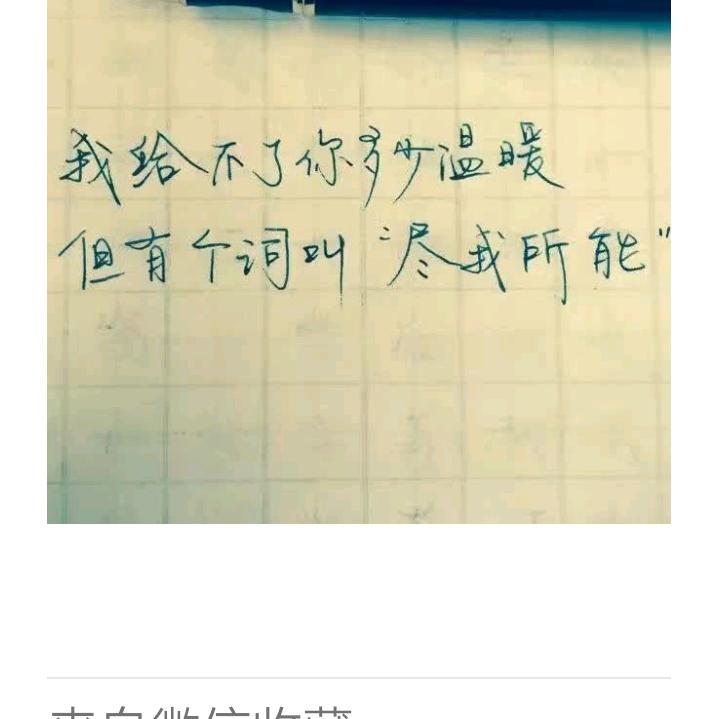 我给不了你多少温暖
但有个词叫“尽我所能”
来自微信收藏